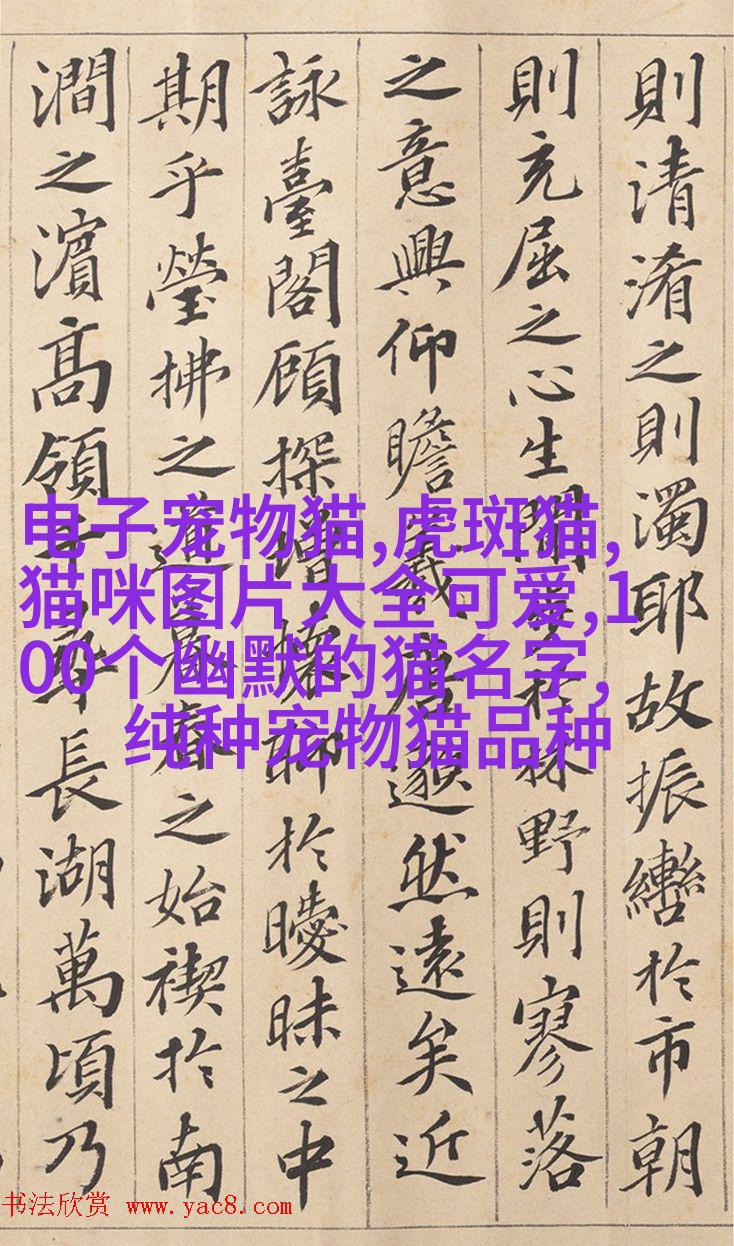 則清淆之則濁耶故振轡於市朝
則充屈之心生閑步於林野則寥落
之意興仰瞻羲唐邈然遠矣近
詠臺閣顧探增懷聊於曖昧之中
期乎瑩拂之道暮春之始禊於南
澗之濱高領千尋長湖萬頃乃
电子宠物猫,虎斑猫,
猫咪图片大全可爱,1
00个幽默的猫名字,
纯种宠物猫品种
书法欣赏 www.yac8.com